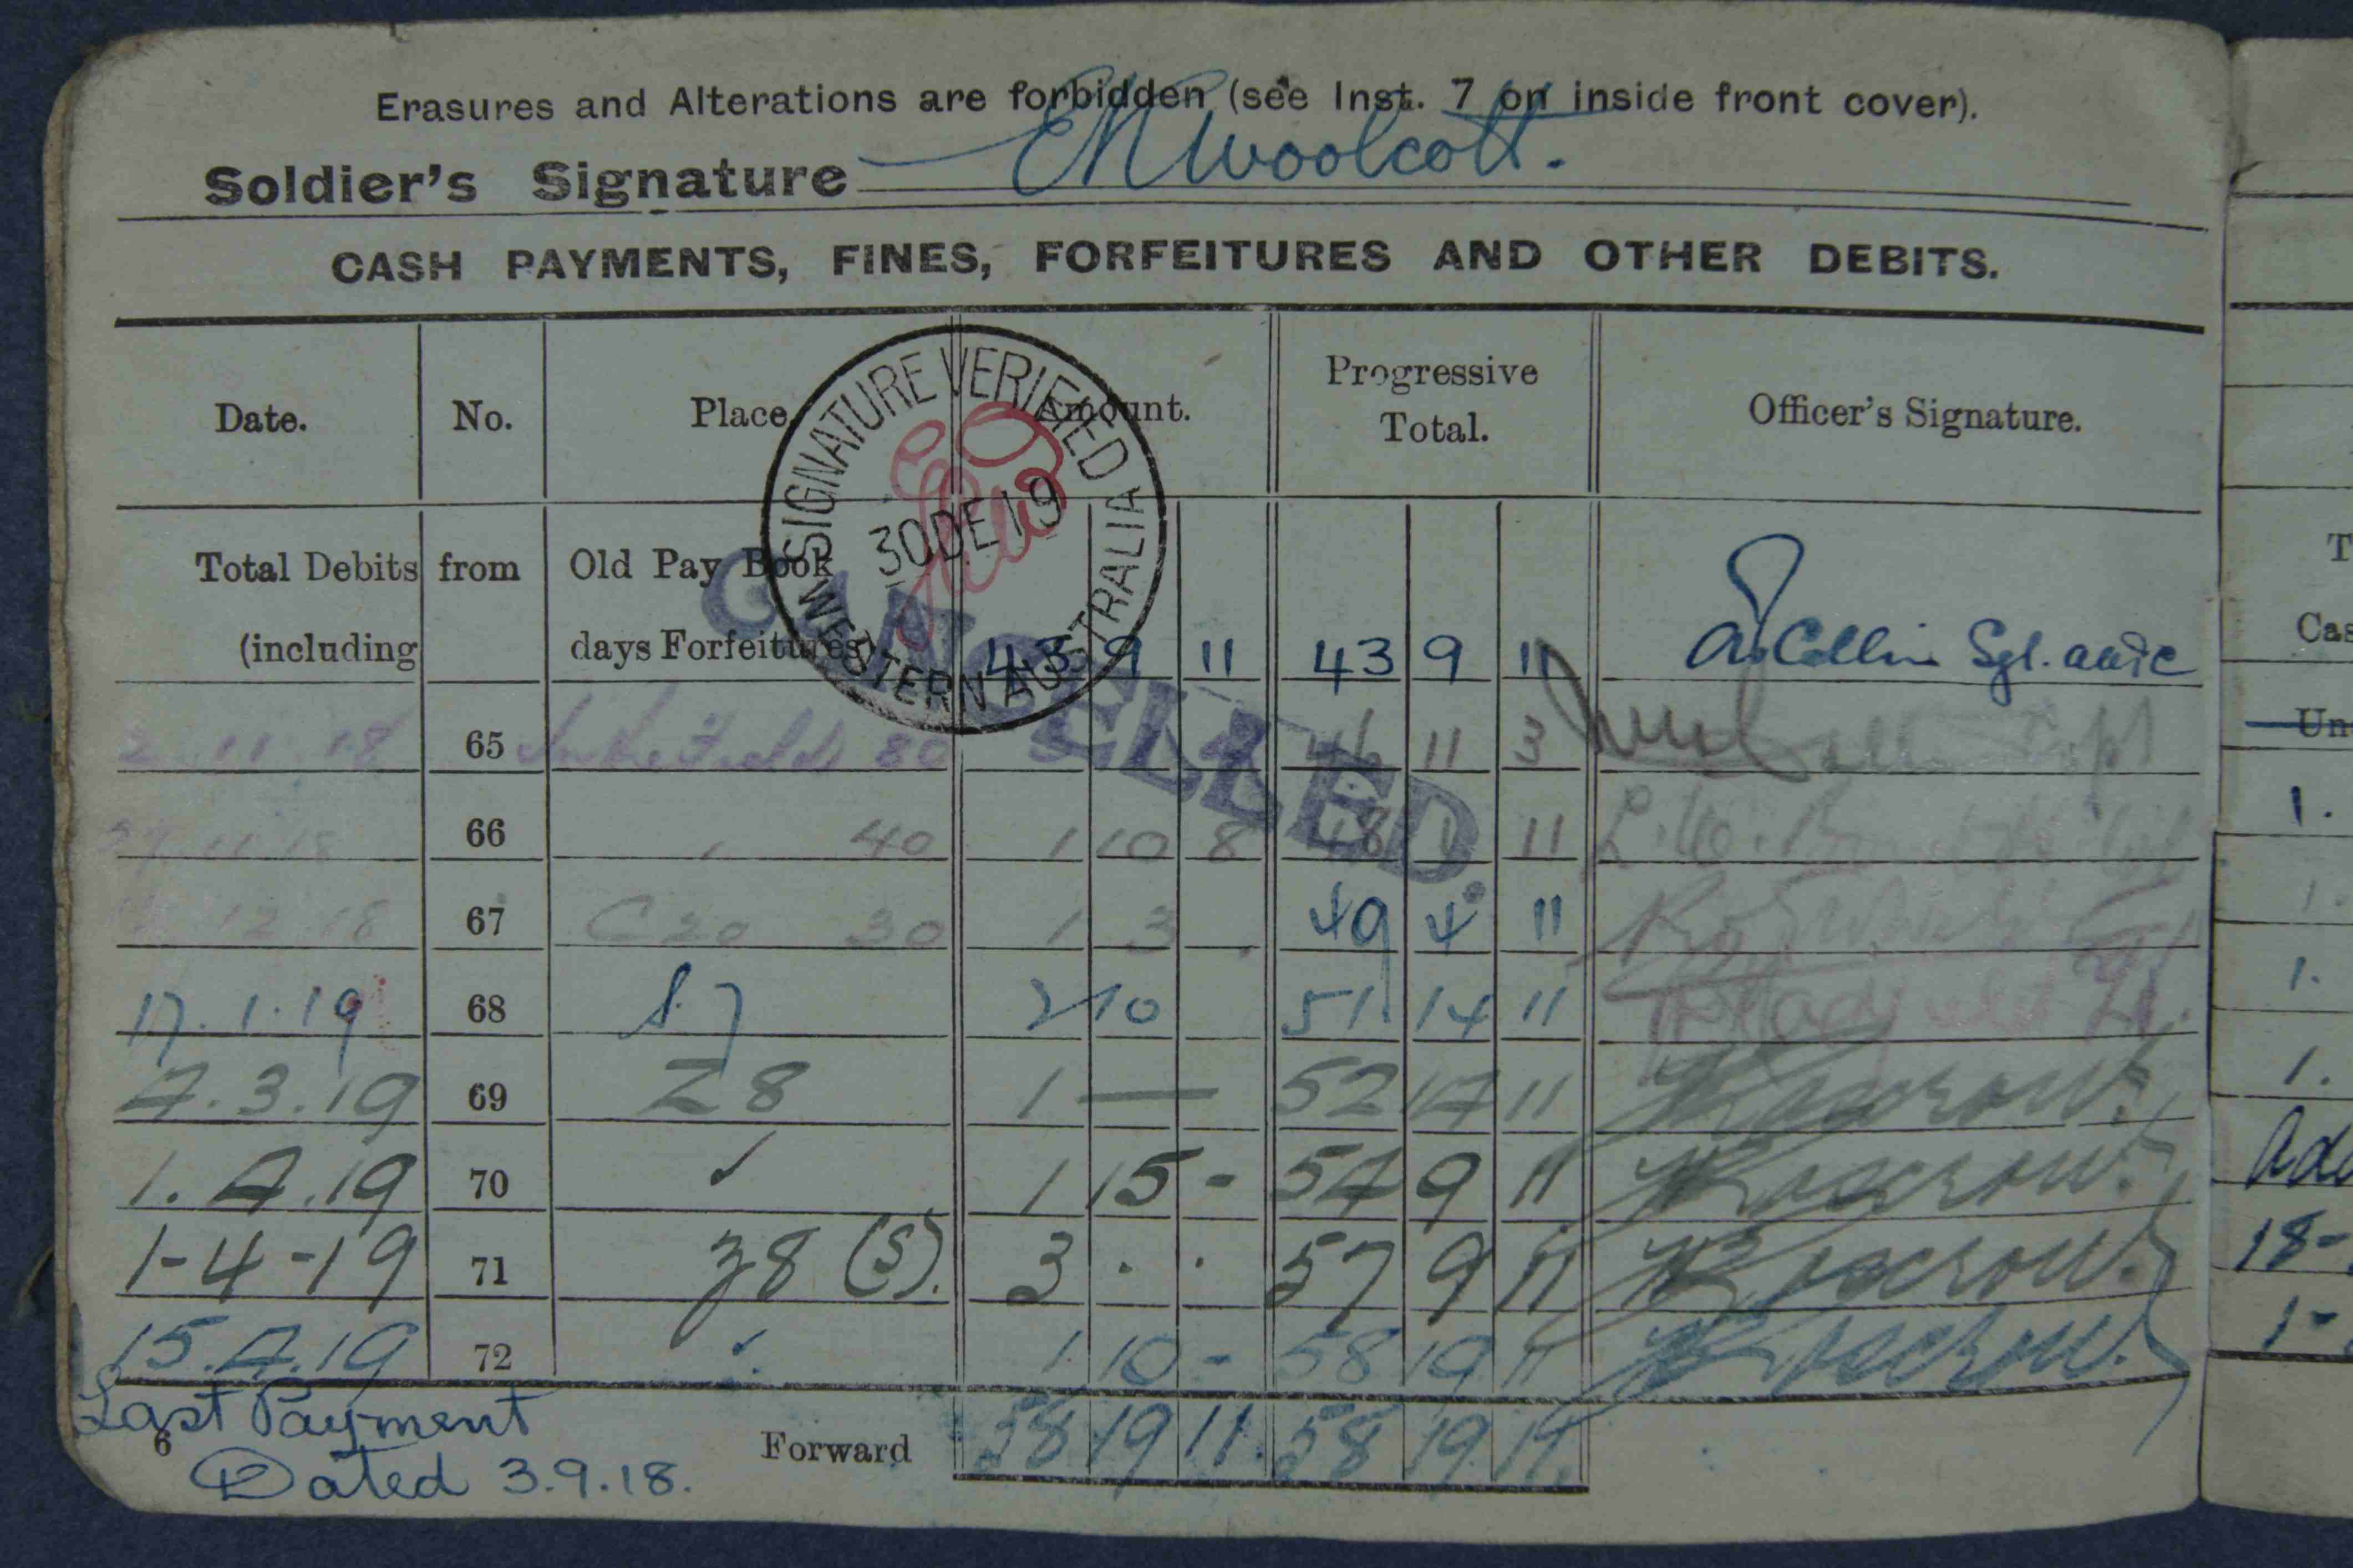 Erasures and Alterations are forbidden (see Inst. 7 on inside front cover).
Soldier's Signature EN Woolcott.
CASH PAYMENTS, FINES, FORFEITURES AND OTHER DEBITS.
Date. No. Place Amount. Progressive Total. Officer's Signature.
SIGNATURE VERIFIED
30 DE 19
WESTERN AUSTRALIA
CANCELLED.
Total Debits from Old Pay Book
(including days Forfeitures) 43 9 11 43 9 11 Collin Sgt.
2.11.18 65 80 46 11 3
11 18 66 40 1 10 8 48 1 11
12.18 67 C20 30 1 3 . 49 4 11
17.1.19 68 S7 2 10 51 14 11
4.3.19 69 Z8 1 — 52 14 11
1.4.19 70 ✓ 1 15 - 54 9 11
1-4-19 71 Z8 (S). 3 . . 57 9 11
15.4.19 72 ✓ 1 10 - 58 19 11
Forward 58 19 11. 58 19 11.
Last Payment
6
Dated 3.9.18.
T
Cas
Un
1.
1.
1.
1.
Add
18-
1-